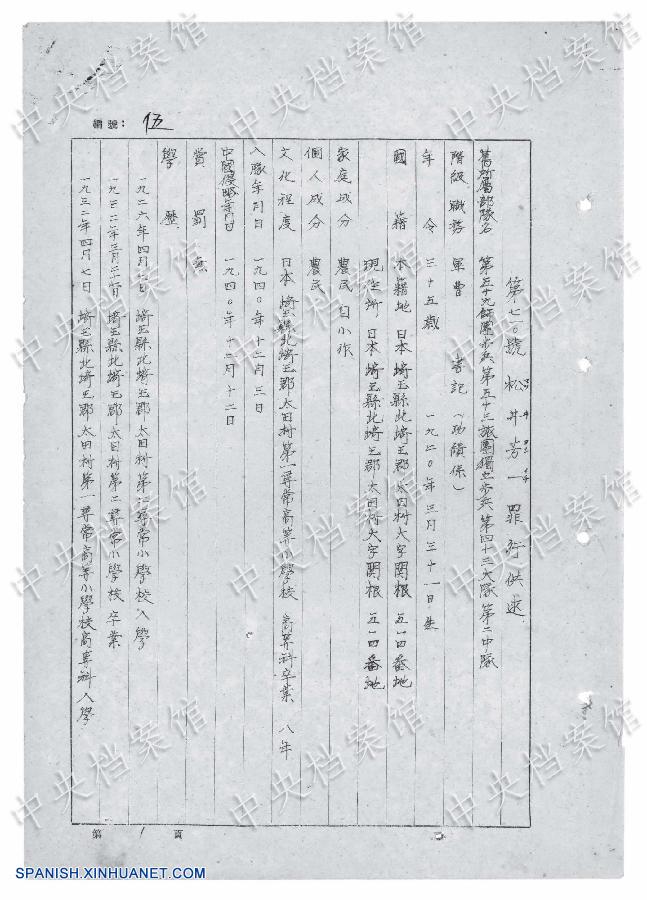 編號：伍
第七〇號 松井芳一 罪行供述
舊所屬部隊名 第五十九師團步兵第五十三旅團獨立步兵第四十三大隊第二中隊
階級 職務 軍曹 書記（功績係）
年令 三十五歲 一九二〇年三月三十一日生
國籍 本籍地 日本埼玉縣北埼玉郡太田村大字関根 五一四番地
現住所，日本埼玉縣北埼玉郡太田村大字関根 五一四番地
家庭成分 農民 自小作
個人成分 農民
文化程度 日本埼玉縣北埼玉郡太田村第一尋常高等小學校 高等科卒業 八年
入隊年月日 一九四〇年十二月三日
中國侵略年月日 一九四〇年十二月十二日
賞罰 無
學歷
一九二六年四月 日 埼玉縣北埼玉郡太田村第二尋常小學校入學
一九三二年三月二十 日 埼玉縣北埼玉郡太田村第二尋常小學校卒業
一九三二年四月七日 埼玉縣北埼玉郡太田村第一尋常高等小學校高等科入學
第1頁
中央档案馆
SPANISH.XINHUANET.COM